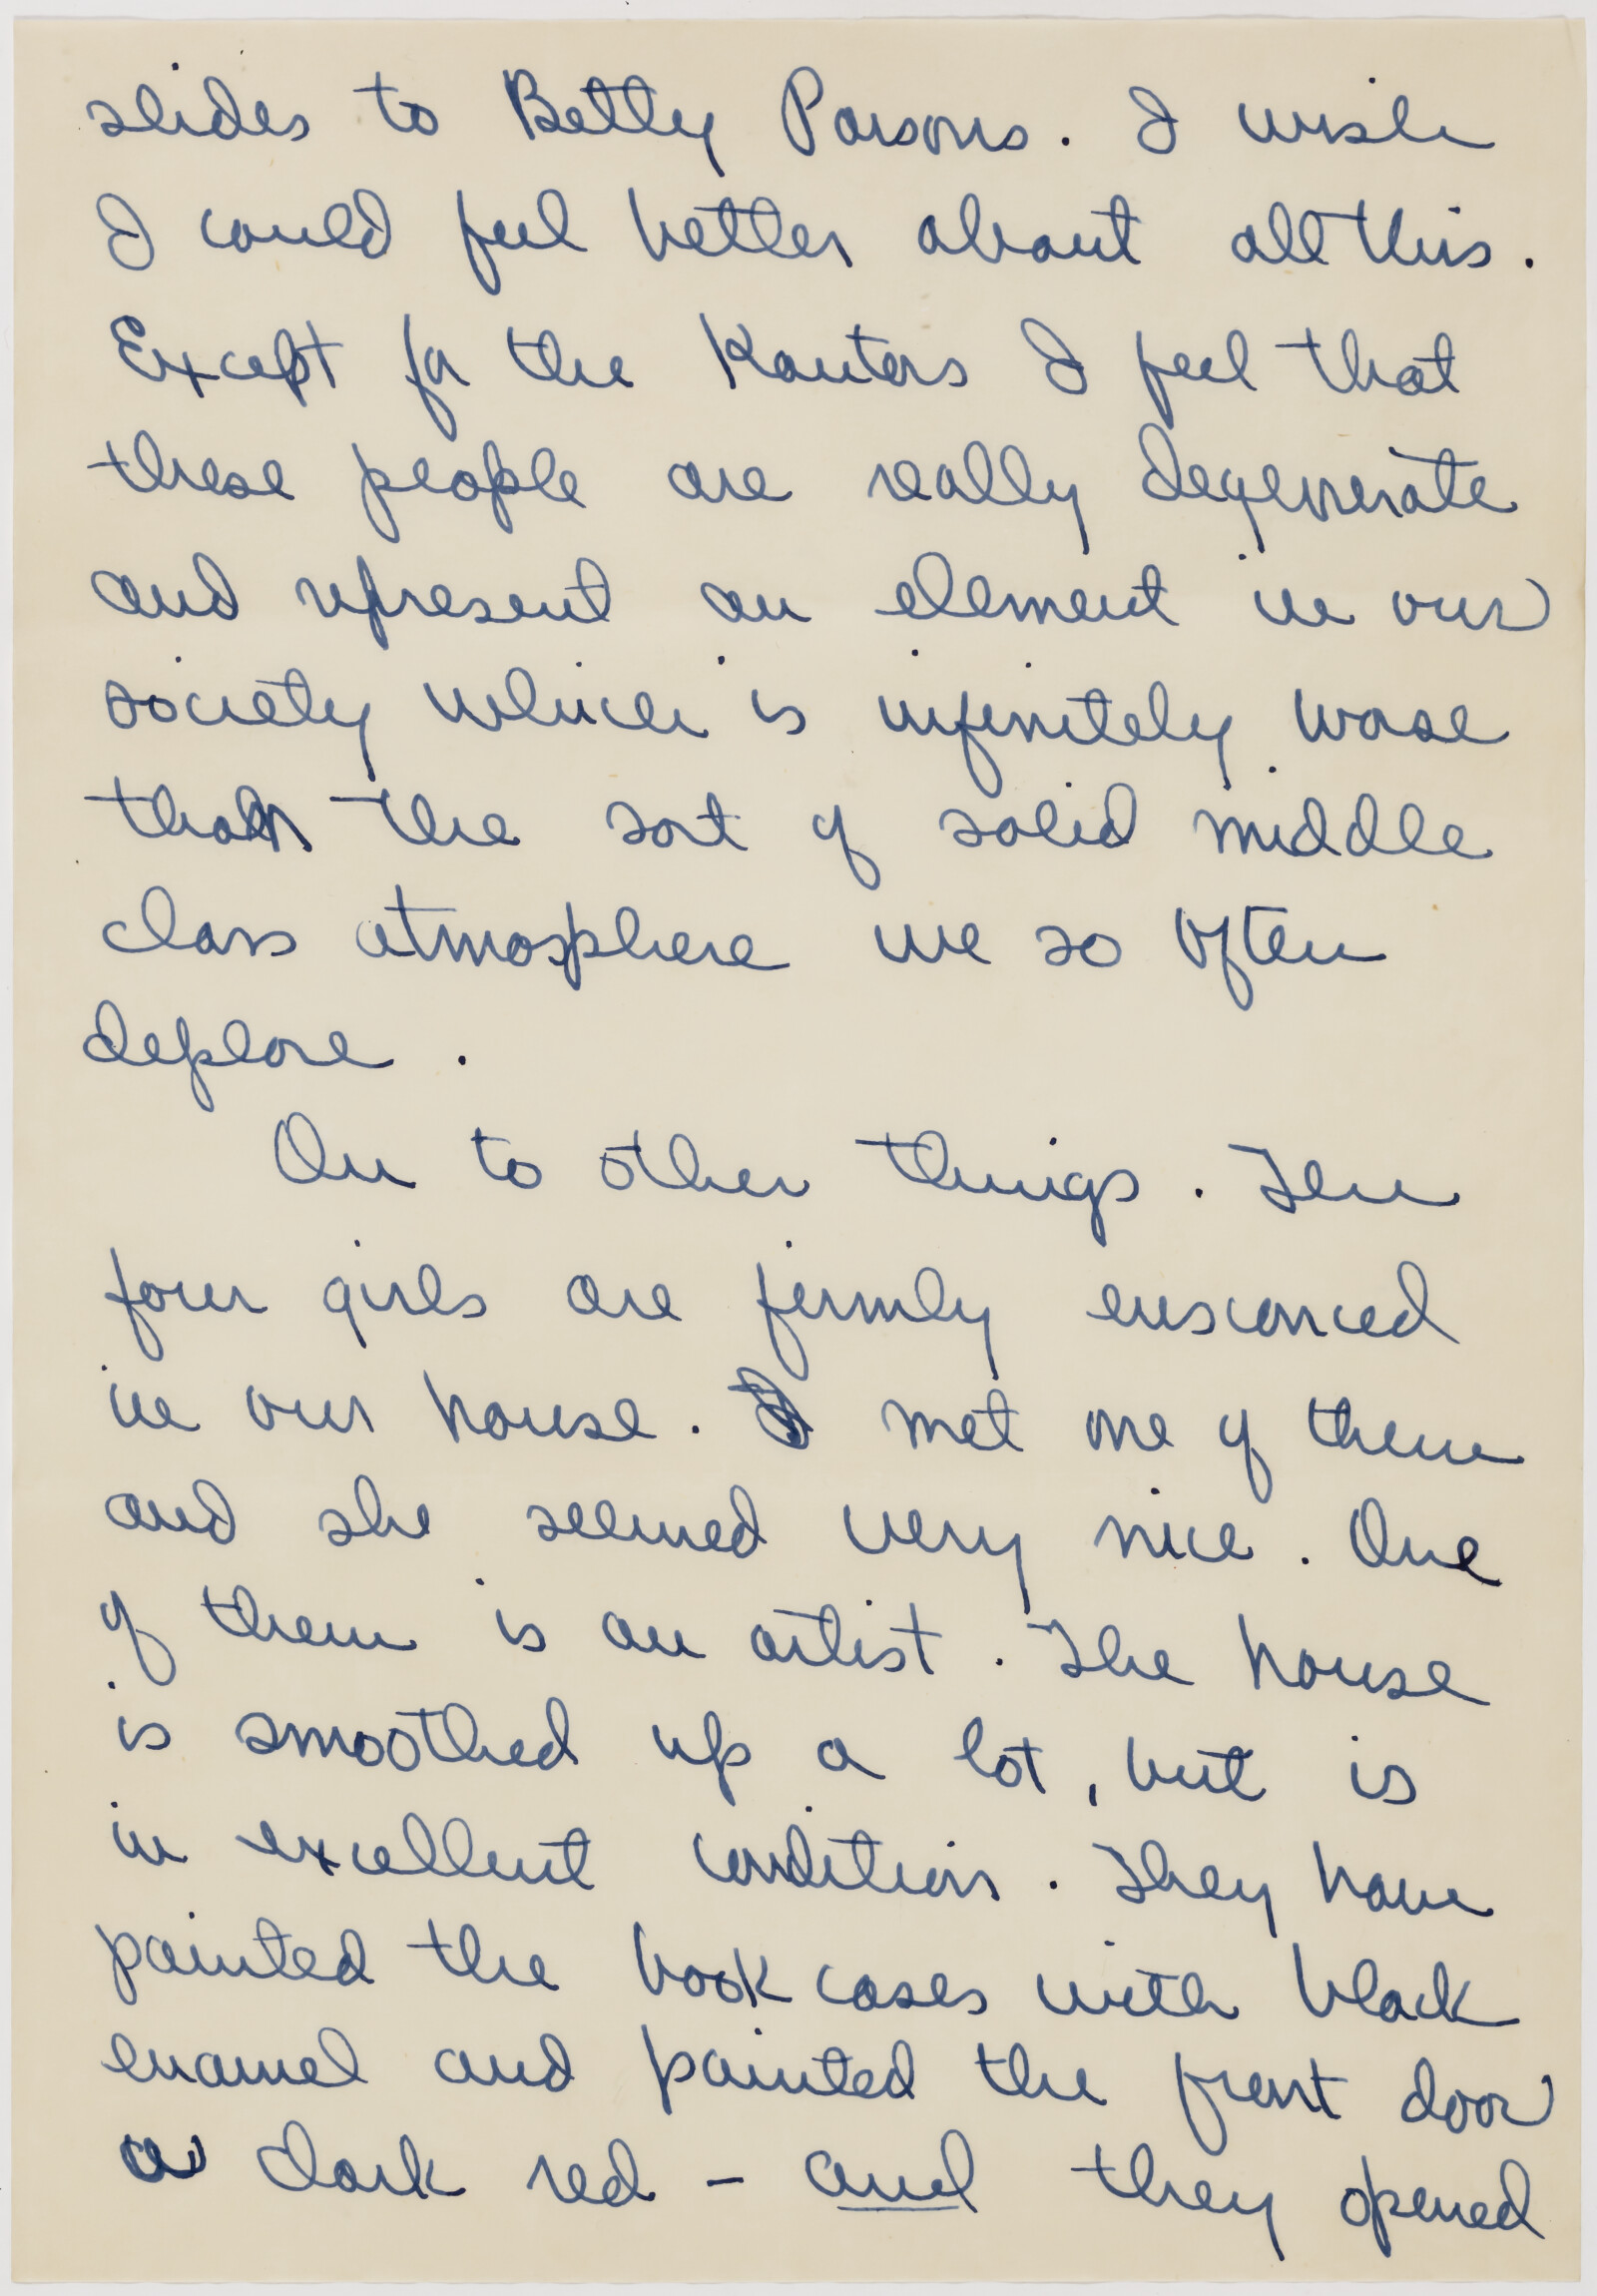 slides to Betty Parsons. I wish
I could feel better about all this.
Except for the Kantors I feel that
these people are really degenerate
and represent an element in our
society which is infinitely worse
than the sort of solid middle
class atmosphere we so often
deplore.
On to other things. The
four girls are firmly ensconced
in our house. I met one of them
and she seemed very nice. One
of them is an artist. The house
is smoothed up a lot, but is
in excellent condition. They have
painted the book cases with black
enamel and painted the front door
a dark red - and they opened